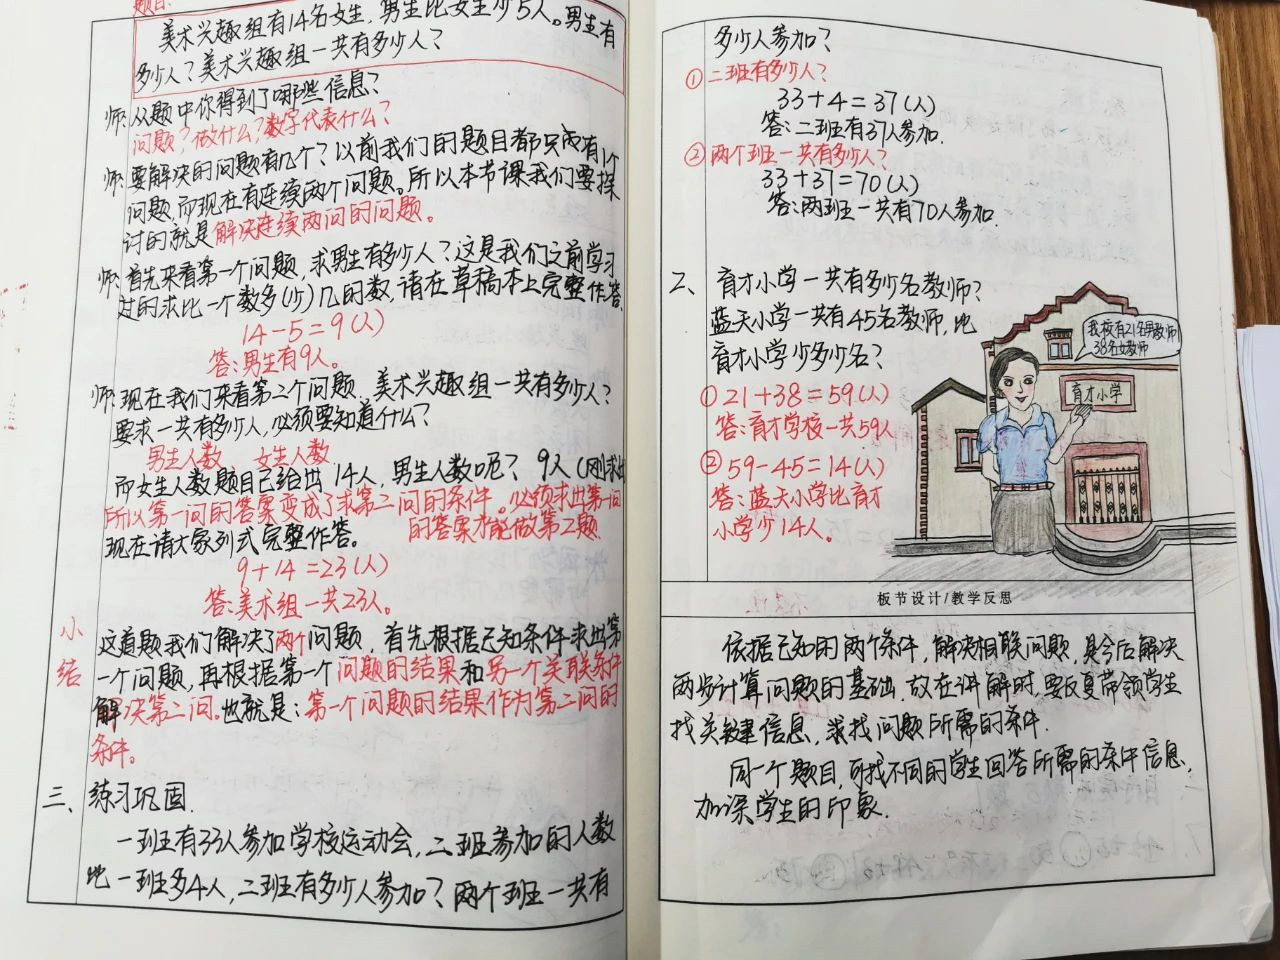 题目:
美术兴趣组有14名女生,男生比女生少5人。男生有
多少人?美术兴趣组一共有多少人?
师:从题中你得到了哪些信息?
问题?做什么?数字代表什么?
师:要解决的问题有几个?以前我们的题目都只有1个
问题,而现在有连续两个问题。所以本节课我们要探
讨的就是解决连续两问的问题。
师:首先来看第一个问题,求男生有多少人?这是我们之前学习
过的求比一个数多(少)几的数,请在草稿本上完整作答。
14-5=9(人)
答:男生有9人。
师:现在我们来看第二个问题,美术兴趣组一共有多少人?
要求一共有多少人,必须要知道什么?
男生人数、女生人数
而女生人数题目已给出14人,男生人数呢?9人(刚求出)
所以第一问的答案变成了求第二问的条件。必须求出第一问
的答案才能做第二题
现在请大家列式完整作答。
9+14=23(人)
答:美术组一共23人。
小结
这道题我们解决了两个问题,首先根据已知条件求出第
一个问题,再根据第一个问题的结果和另一个关联条件
解决第二问。也就是:第一个问题的结果作为第二问的
条件。
三、练习巩固.
一班有33人参加学校运动会,二班参加的人数
比一班多4人,二班有多少人参加?两个班一共有
多少人参加?
①二班有多少人?
33+4=37(人)
答:二班有37人参加.
②两个班一共有多少人?
33+37=70(人)
答:两班一共有70人参加.
2、育才小学一共有多少名教师?
蓝天小学一共有45名教师,比
育才小学少多少名?
我校有21名男教师
38名女教师
育才小学
①21+38=59(人)
答:育才学校一共59人
②59-45=14(人)
答:蓝天小学比育才
小学少14人。
板节设计/教学反思
依据已知的两个条件,解决相联问题,是今后解决
两步计算问题的基础.故在讲解时,要反复带领学生
找关键信息,求找问题所需的条件.
同一个题目,可找不同的学生回答所需的条件信息,
加深学生的印象.